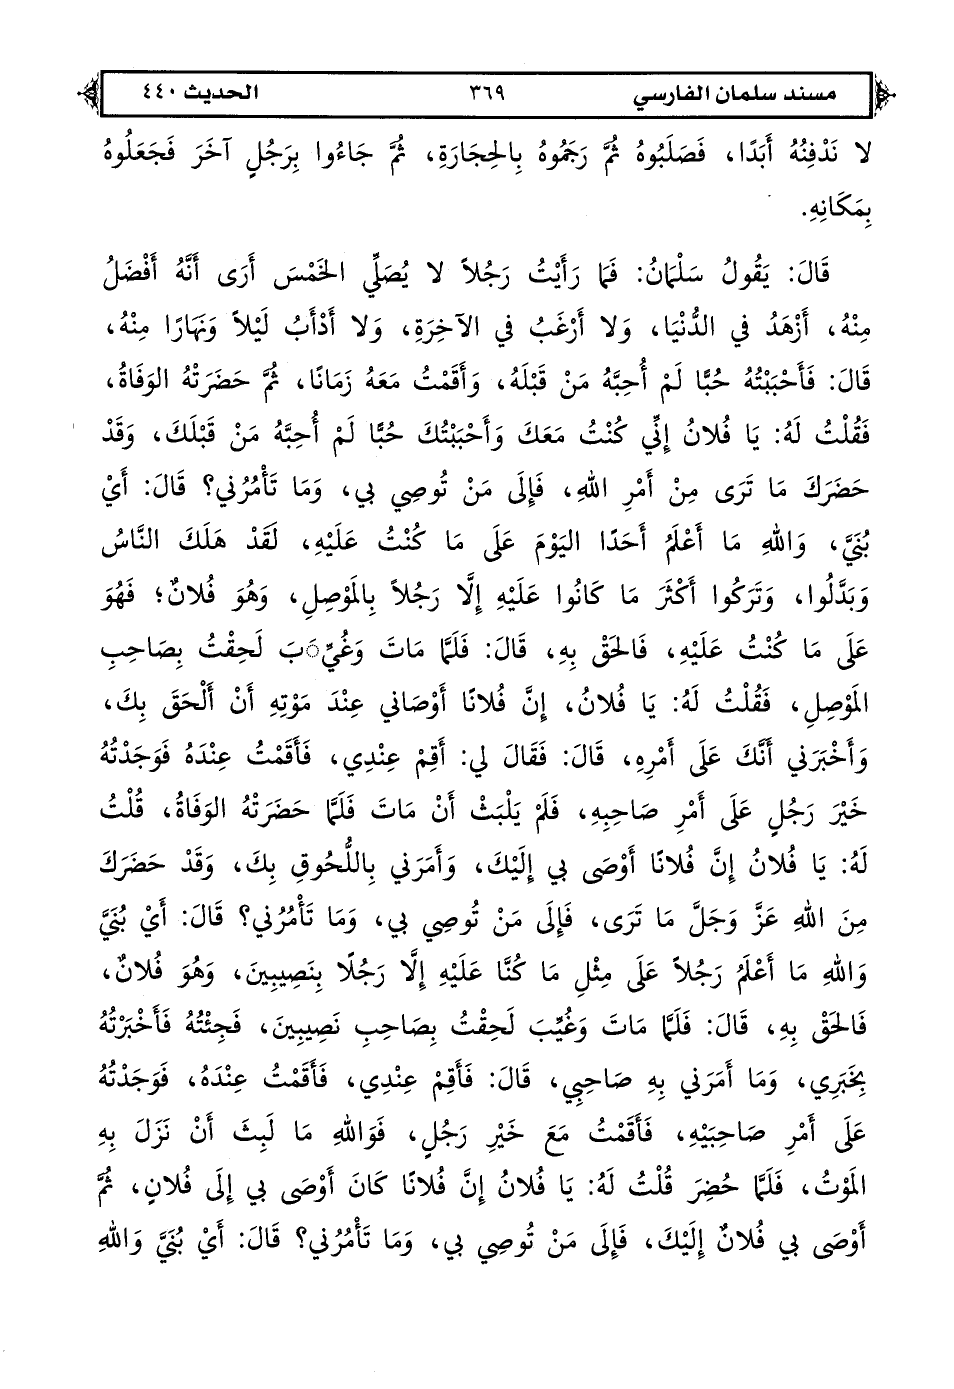 مسند سلمان الفارسي ٣٦٩ الحديث ٤٤٠
لا نَدْفِنُهُ أَبَدًا، فَصَلَبُوهُ ثُمَّ رَجَمُوهُ بِالحِجَارَةِ، ثُمَّ جَاءُوا بِرَجُلٍ آخَرَ فَجَعَلُوهُ
بِمَكَانِهِ.
قَالَ: يَقُولُ سَلْمَانُ: فَمَا رَأَيْتُ رَجُلاً لا يُصَلِّي الخَمْسَ أَرَى أَنَّهُ أَفْضَلُ
مِنْهُ، أَزْهَدُ في الدُّنْيَا، وَلا أَرْغَبُ في الآخِرَةِ، وَلا أَدْأَبُ لَيْلاً وَنَهَارًا مِنْهُ،
قَالَ: فَأَحْبَبْتُهُ حُبًّا لَمْ أُحِبَّهُ مَنْ قَبْلَهُ، وَأَقَمْتُ مَعَهُ زَمَانًا، ثُمَّ حَضَرَتْهُ الوَفَاةُ،
فَقُلْتُ لَهُ: يَا فُلانُ إِنِّي كُنْتُ مَعَكَ وَأَحْبَبْتُكَ حُبًّا لَمْ أُحِبَّهُ مَنْ قَبْلَكَ، وَقَدْ
حَضَرَكَ مَا تَرَى مِنْ أَمْرِ اللهِ، فَإِلَى مَنْ تُوصِي بي، وَمَا تَأْمُرُني؟ قَالَ: أَيْ
بُنَيَّ، وَاللهِ مَا أَعْلَمُ أَحَدًا اليَوْمَ عَلَى مَا كُنْتُ عَلَيْهِ، لَقَدْ هَلَكَ النَّاسُ
وَبَدَّلُوا، وَتَرَكُوا أَكْثَرَ مَا كَانُوا عَلَيْهِ إِلَّا رَجُلاً بِالمَوْصِلِ، وَهُوَ فُلانٌ؛ فَهُوَ
عَلَى مَا كُنْتُ عَلَيْهِ، فَالحَقْ بِهِ، قَالَ: فَلَمَّا مَاتَ وَغُيِّبَ لَحِقْتُ بِصَاحِبِ
المَوْصِلِ، فَقُلْتُ لَهُ: يَا فُلانُ، إِنَّ فُلانًا أَوْصَاني عِنْدَ مَوْتِهِ أَنْ أَلْحَقَ بِكَ،
وَأَخْبَرَني أَنَّكَ عَلَى أَمْرِهِ، قَالَ: فَقَالَ لي: أَقِمْ عِنْدِي، فَأَقَمْتُ عِنْدَهُ فَوَجَدْتُهُ
خَيْرَ رَجُلٍ عَلَى أَمْرِ صَاحِبِهِ، فَلَمْ يَلْبَثْ أَنْ مَاتَ فَلَمَّا حَضَرَتْهُ الوَفَاةُ، قُلْتُ
لَهُ: يَا فُلانُ إِنَّ فُلانًا أَوْصَى بي إِلَيْكَ، وَأَمَرَني بِاللُّحُوقِ بِكَ، وَقَدْ حَضَرَكَ
مِنَ اللهِ عَزَّ وَجَلَّ مَا تَرَى، فَإِلَى مَنْ تُوصِي بي، وَمَا تَأْمُرُني؟ قَالَ: أَيْ بُنَيَّ
وَاللهِ مَا أَعْلَمُ رَجُلاً عَلَى مِثْلِ مَا كُنَّا عَلَيْهِ إِلَّا رَجُلًا بِنَصِيبِينَ، وَهُوَ فُلانٌ،
فَالحَقْ بِهِ، قَالَ: فَلَمَّا مَاتَ وَغُيِّبَ لَحِقْتُ بِصَاحِبِ نَصِيبِينَ، فَجِئْتُهُ فَأَخْبَرْتُهُ
بِخَبَرِي، وَمَا أَمَرَني بِهِ صَاحِبِي، قَالَ: فَأَقِمْ عِنْدِي، فَأَقَمْتُ عِنْدَهُ، فَوَجَدْتُهُ
عَلَى أَمْرِ صَاحِبَيْهِ، فَأَقَمْتُ مَعَ خَيْرِ رَجُلٍ، فَوَاللهِ مَا لَبِثَ أَنْ نَزَلَ بِهِ
المَوْتُ، فَلَمَّا حُضِرَ قُلْتُ لَهُ: يَا فُلانُ إِنَّ فُلانًا كَانَ أَوْصَى بي إِلَى فُلانٍ، ثُمَّ
أَوْصَى بي فُلانٌ إِلَيْكَ، فَإِلَى مَنْ تُوصِي بي، وَمَا تَأْمُرُني؟ قَالَ: أَيْ بُنَيَّ وَاللهِ